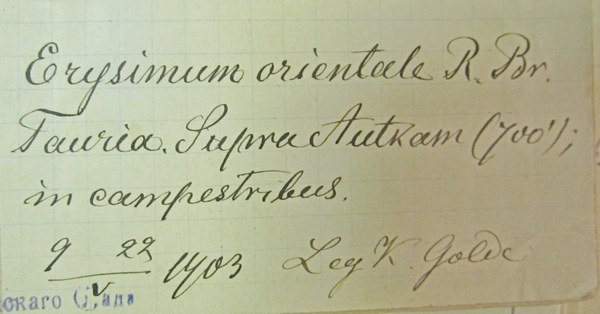 Erysimum orientale R. Br.
Tauria. Supra Autkam (700');
in campestribus.
9 22 1903 Leg K. Golde
V
скаго Сада